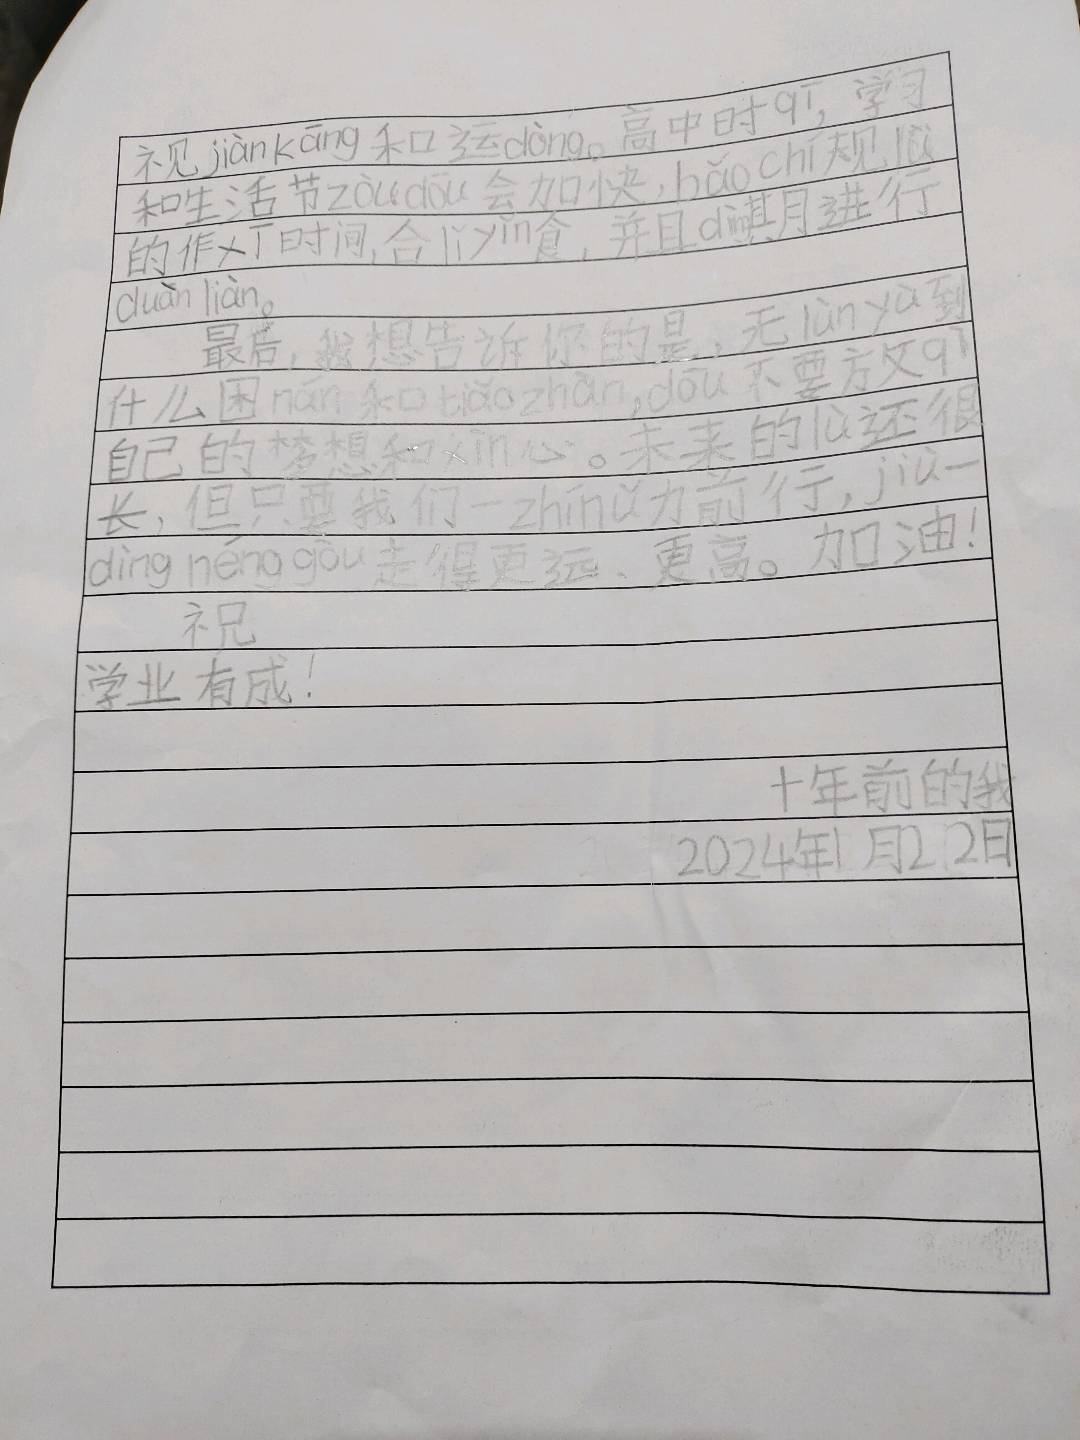 视jiànkāng和运dòng。高中时qī，学习
和生活节zòudōu会加快，bǎochí规lǜ
的作xī时间，合lǐyǐn食，并且dìng期进行
duànliàn。
最后，我想告诉你的是，无lùnyù到
什么困nán和tiǎozhàn，dōu不要放qì
自己的梦想和xìn心。未来的lù还很
长，但只要我们一zhínǔ力前行，jiù一
dìngnénggòu走得更远、更高。加油！
祝
学业有成！
十年前的我
2024年1月22日